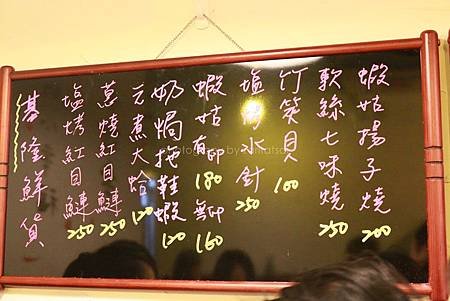 基隆鮮貨
塩烤紅目鰱 250
蔥燒紅目鰱 250
元煮大蛤 120
奶焗拖鞋蝦 120
蝦姑 有卵 180 無卵 160
塩烤水針 250
竹筴貝 100
軟絲七味燒 250
蝦姑揚子燒 200